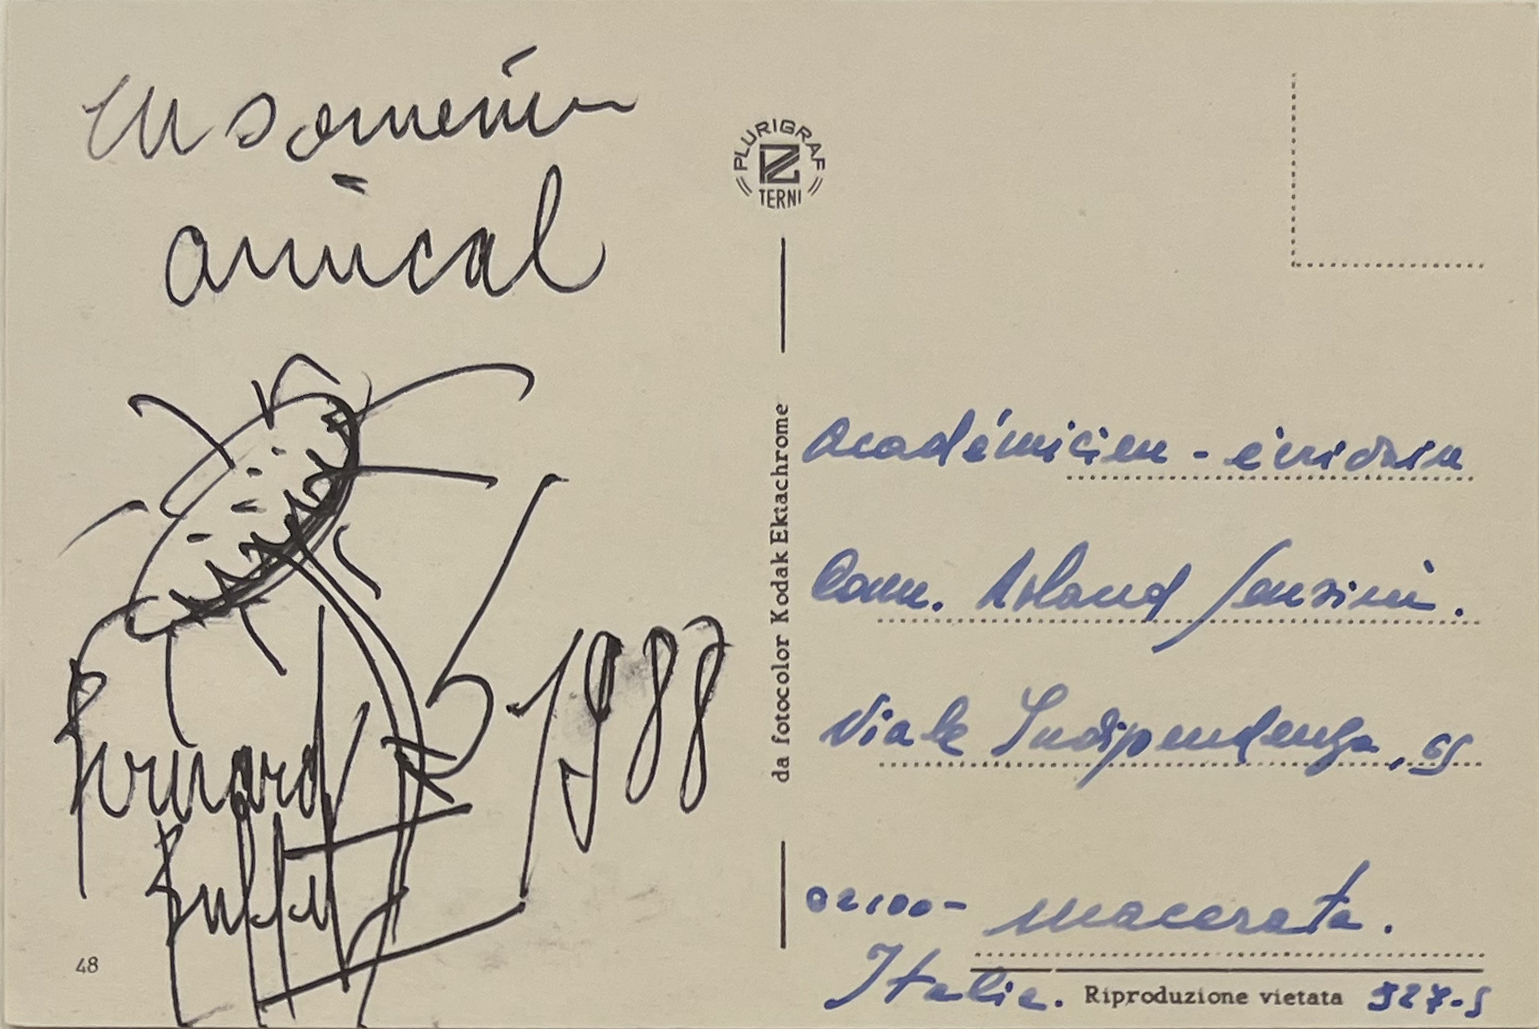 en souvenir
amical
Bernard
Buffet
5 1988
48
PLURIGRAF
TERNI
da fotocolor Kodak Ektachrome
Académicien - écrivain
Comm. Roland Sensini.
Viale Indipendenza, 65
02100 - Macerata.
Italie.
Riproduzione vietata